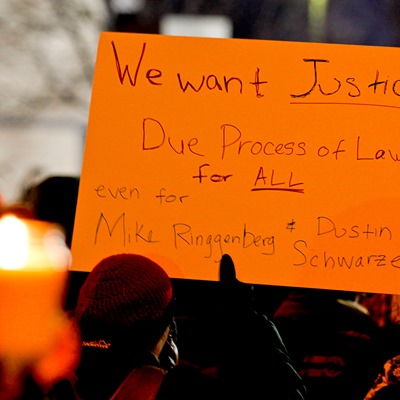 We want Justic
Due Process of Law
for ALL
even for
Mike Ringgenberg & Dustin
Schwarze